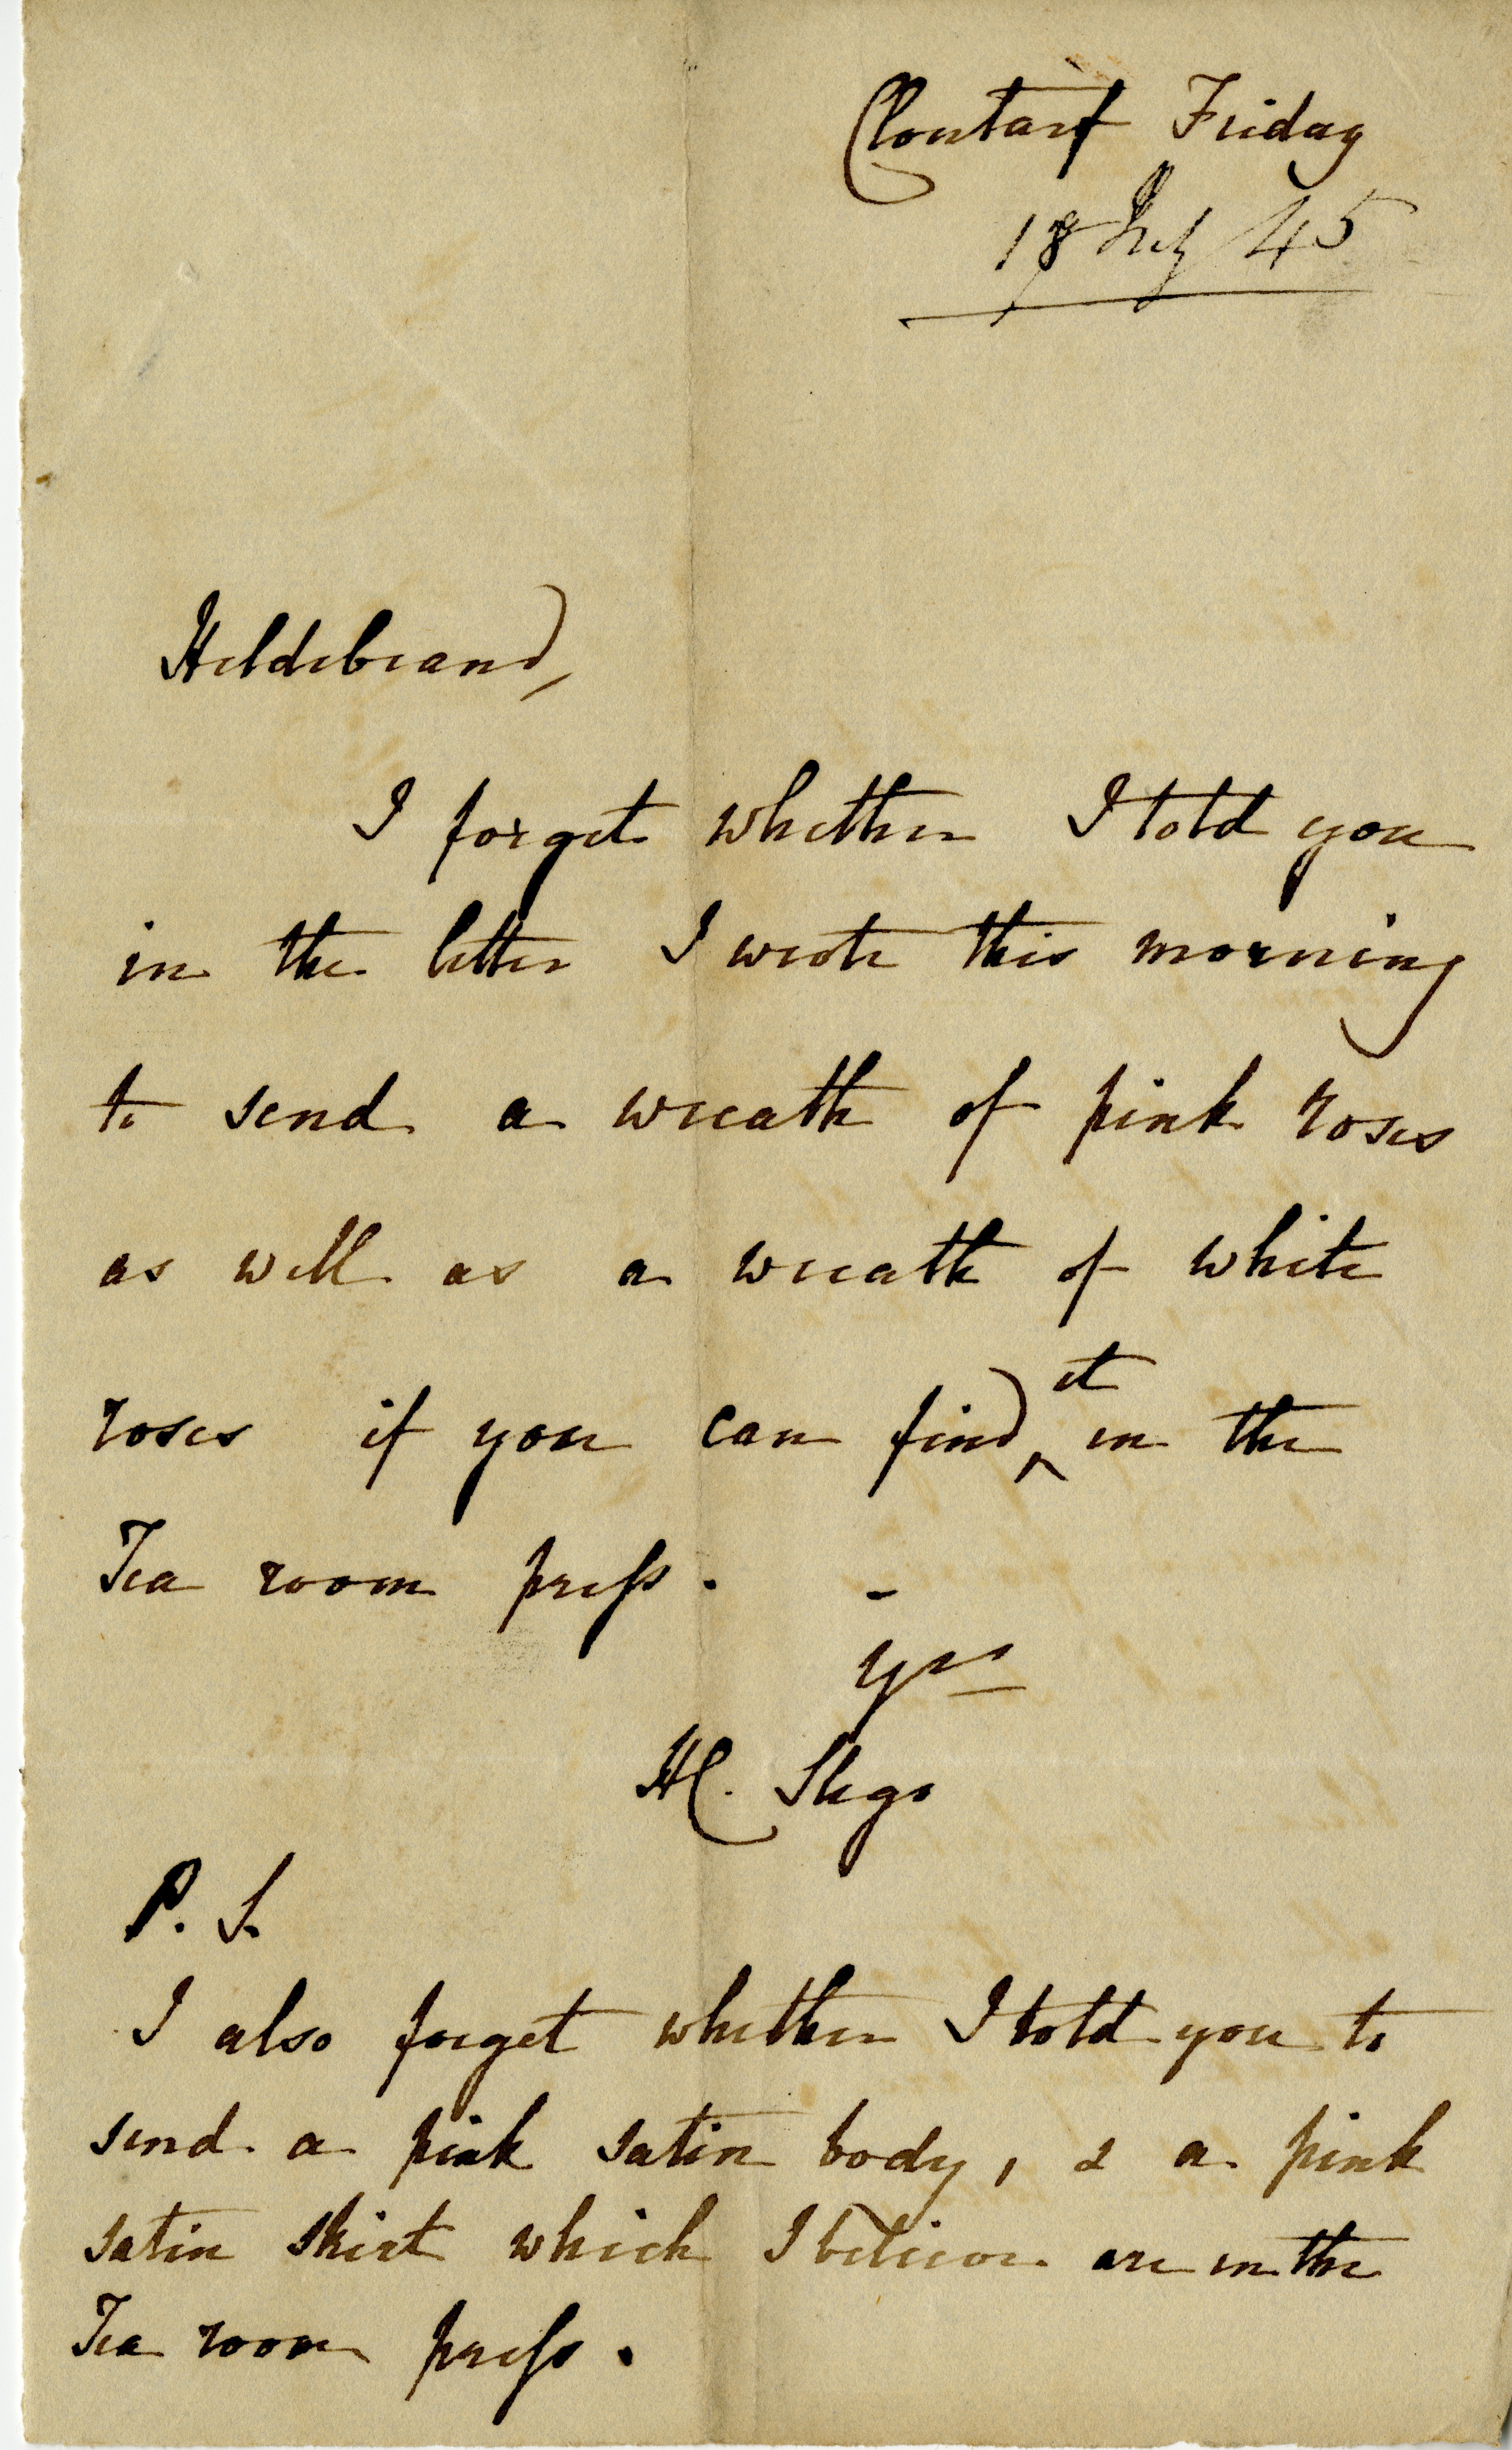 Clontarf Friday
18 July 45
Hildebrand,
I forget whether I told you
in the letter I wrote this morning
to send a wreath of pink roses
as well as a wreath of white
roses if you can find ^it in the
Tea room press. -
yrs
HC. Sligo
P. S.
I also forget whether I told you to
send a pink satin body, & a pink
satin skirt which I believe are in the
Tea room press.